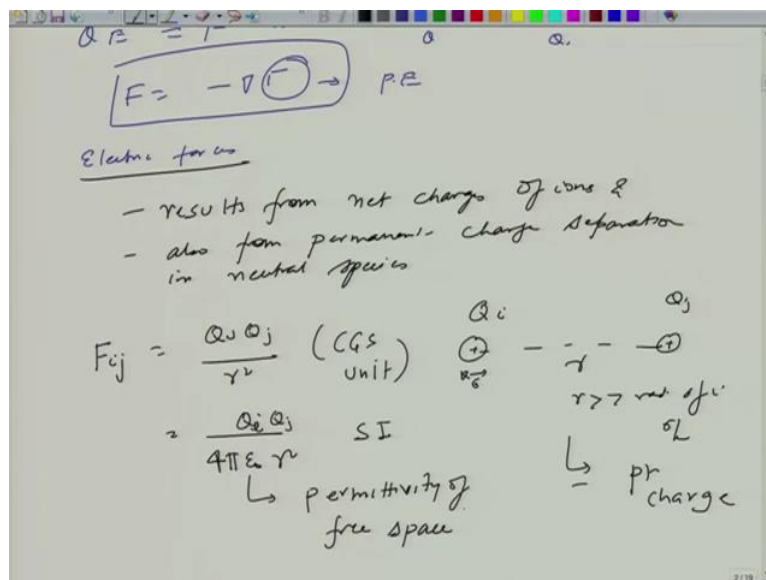 F = - ∇ Γ → P.E
Electric forces
- results from net charges of ions &
- also from permanent charge separation
in neutral species
Qi Qj
Fij = Qi Qj / r² (CGS unit) + - - - + r
r >> rad. of i or
= Qi Qj / 4πε₀ r² SI
↳ permittivity of
free space
↳ pt charge
2/19